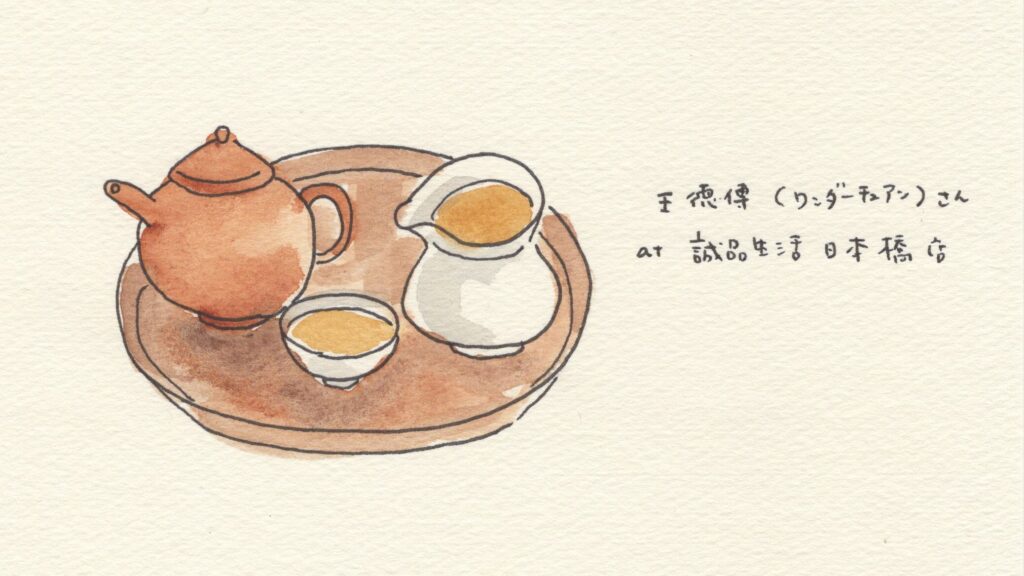 王德傳（ワンダーチュアン）さん
at 誠品生活 日本橋店